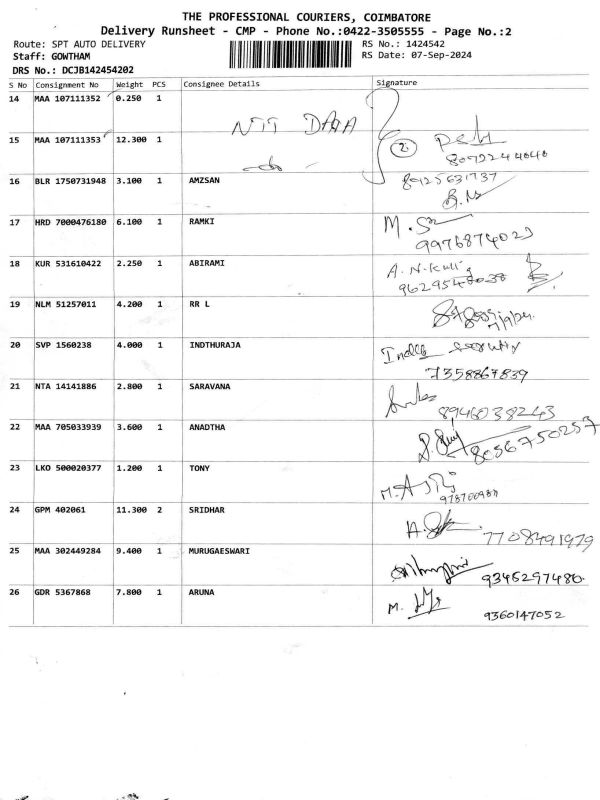 THE PROFESSIONAL COURIERS, COIMBATORE
Delivery Runsheet - CMP - Phone No.:0422-3505555 - Page No.:2
Route: SPT AUTO DELIVERY RS No.: 1424542
Staff: GOWTHAM RS Date: 07-Sep-2024
DRS No.: DCJB142454202
S No Consignment No Weight PCS Consignee Details Signature
14 MAA 107111352 0.250 1
NTT DATA
15 MAA 107111353 12.300 1 2
8072244040
16 BLR 1750731948 3.100 1 AMZSAN 8925631737
17 HRD 7000476180 6.100 1 RAMKI M.
9976874023
18 KUR 531610422 2.250 1 ABIRAMI A.N.
19 NLM 51257011 4.200 1 RR L
7/9/24
20 SVP 1560238 4.000 1 INDTHURAJA Security
7358867839
21 NTA 14141886 2.800 1 SARAVANA
8946038243
22 MAA 705033939 3.600 1 ANADTHA 8056750257
23 LKO 500020377 1.200 1 TONY
24 GPM 402061 11.300 2 SRIDHAR
7708491979
25 MAA 302449284 9.400 1 MURUGAESWARI
9345297480
26 GDR 5367868 7.800 1 ARUNA M.
9360147052